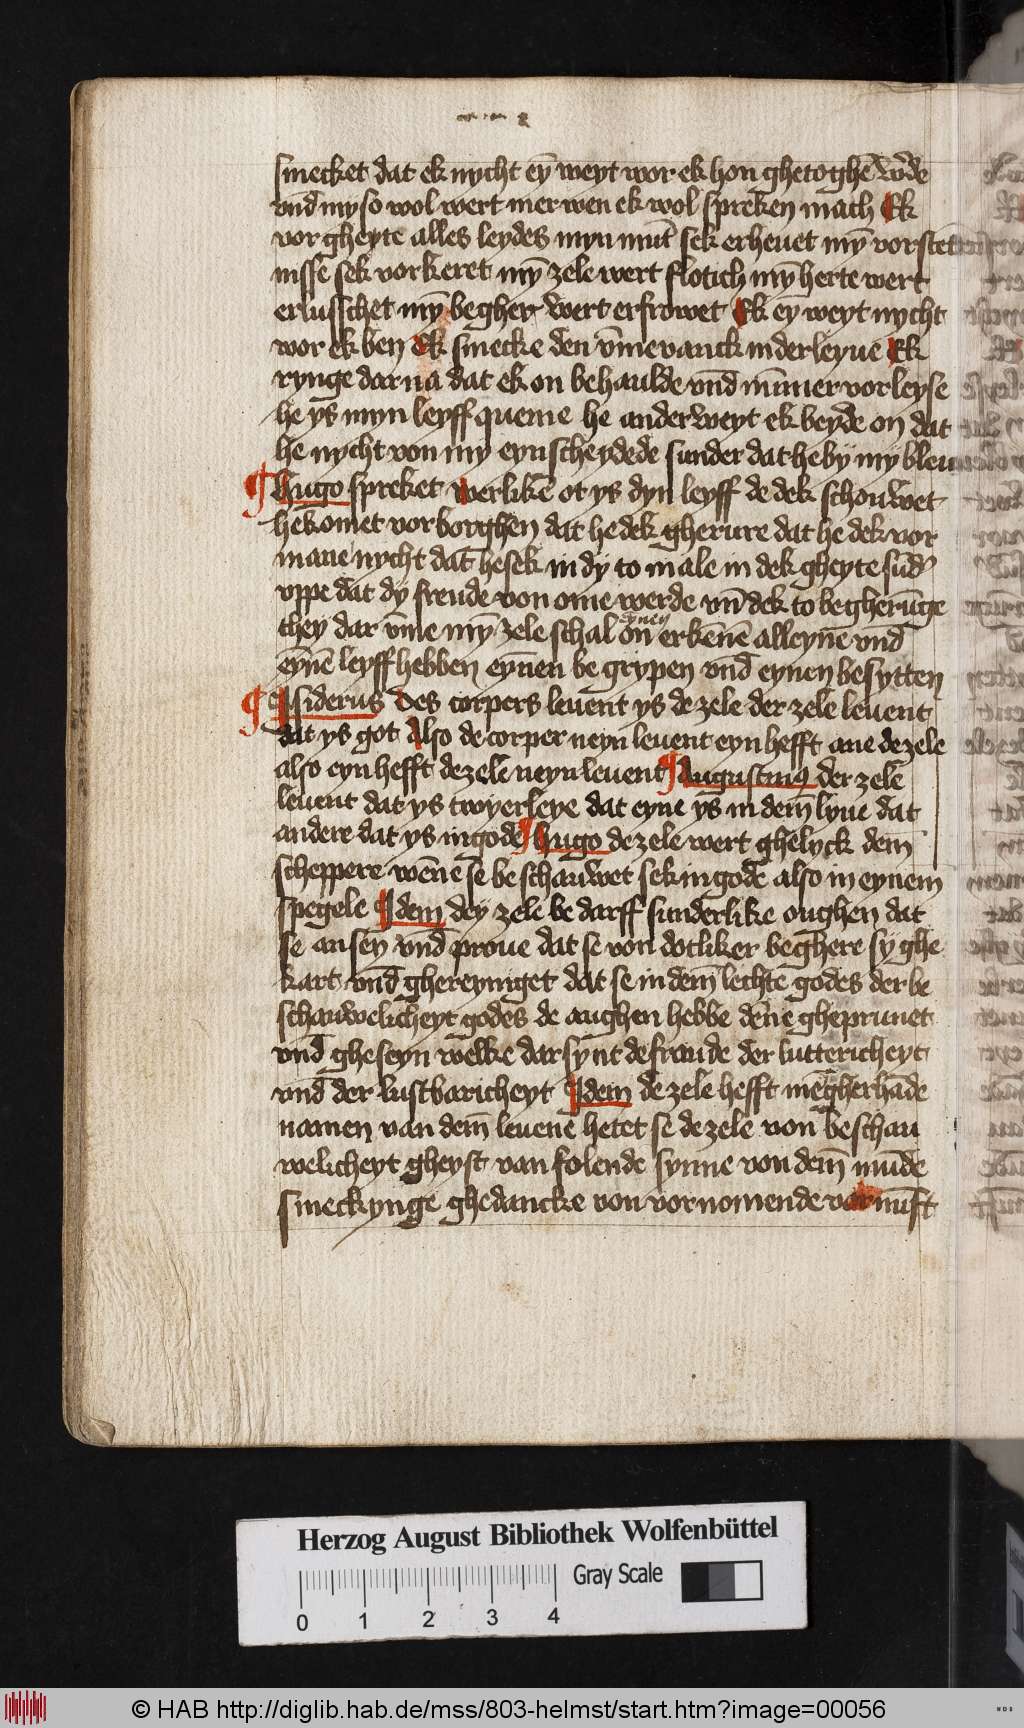 smecket dat ek nycht eȳ weyt wor ek hon ghetoghē w̄de
vnd my so wol wert mer wen ek wol spreken mach Ek
vor gheyte alles leydes myn mūt sek erheuet mȳ vorstent
nisse sek vorkeret mȳ zele wert flotich mȳ herte wert
erlusschet mȳ begher wert erfrowet Ek eȳ weyt nycht
wor ek ben Ek smecke den v̄mevanck in der leyue Ek
rynge dar na dat ek on behaulde vnd nūmer vorleyse
he ys myn leyff queme he anderweyt ek beyde on dat
he nycht von my eyn scheydede sunder dat he by my bleue
¶ Hugo spreket werlikē ot ys dyn leyff de dek schouwet
he komet vorborghen dat he dek gherure dat he dek vor
mane nycht dat he sek in dy to male in dek gheyte sūd
vppe dat dy freude von ome werde vn̄ dek to begherūge
they dar v̄me mȳ zele schal on eynen erkēnē alleyne vnd
eynē leyff hebben eynen begrypen vnd eynen besytten
¶ Isiderus Des corpers leuent ys de zele der zele leuent
dat ys got Also de corper neyn leuent eyn hefft ane de zele
also eyn hefft de zele neyn leuent ¶ Augustinus der zele
leuent dat ys twyerleye dat eyne ys in dem lyue dat
andere dat ys in gode ¶ Hugo de zele wert ghelyck dem
scheppere wēne se beschauwet sek in gode also in eynem
spegele Idem dey zele bedarff sunderlike oughen dat
se ansey vnd proue dat se von dotliker beghere sy ghe
kart vnd ghereyniget dat se in dem lechte godes der be
schauwelicheyt godes de aughen hebbe dēne gheprunet
vnd gheseyn welke dar synt de freude der lutterheyt
vnd der lustbaricheyt Idem de zele hefft mēgherhāde
namen van dem leuene hetet se de zele von beschau
welicheyt gheyst van folende synne von dem mūde
smeckynge ghedancke von vornomende vornuft
Herzog August Bibliothek Wolfenbüttel
0 1 2 3 4 Gray Scale
© HAB http://diglib.hab.de/mss/803-helmst/start.htm?image=00056